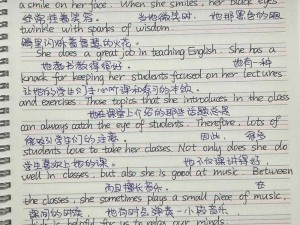 a smile on her face. When she smiles, her black eyes
经常挂着笑容。 当她微笑时, 她那黑色的眼
twinkle with sparks of wisdom.
睛里闪烁着智慧的火花。
She does a great job in teaching English. She has a
她 有一种
knack for keeping her students focused on her lectures
让她的学生们
and exercises. Those topics that she introduces in the class
她在课堂上介绍的那些话题总是
can always catch the eye of students. Therefore, lots of
学生们的注意。 因此, 许多
students love to take her classes. Not only does she do
学生喜欢上她的课。 她不仅课讲得好,
well in classes, but also she is good at music. Between
而且擅长音乐。 在
the classes, she sometimes plays a small piece of music,
课间的时候, 她有时会演奏一小段音乐,
helpful for us to relax our minds.